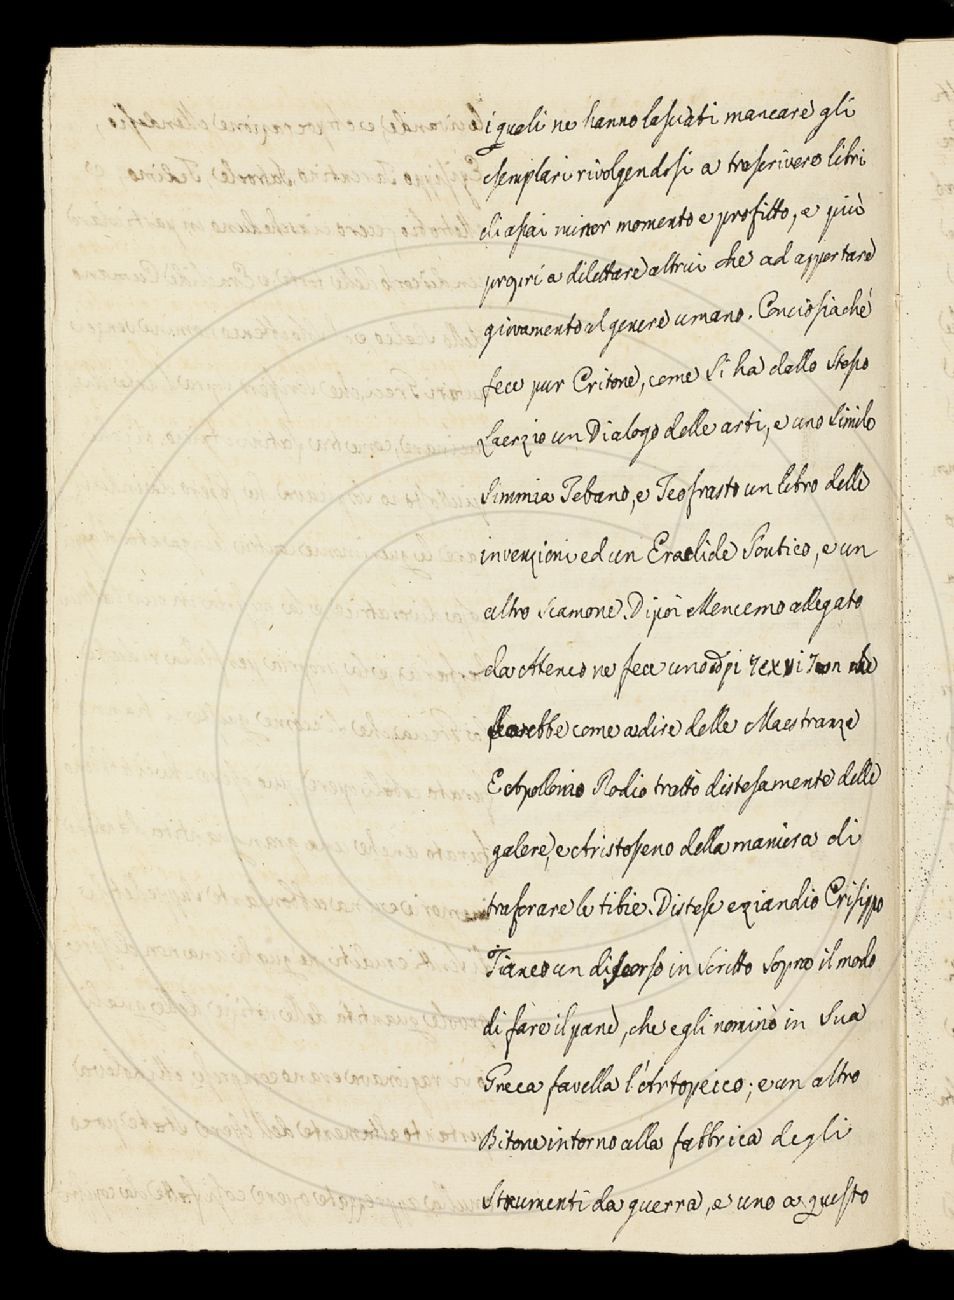 i quali ne hanno lasciati mancare gli
esemplari rivolgendosi a trascrivere libri
di assai minor momento e profitto, e più
proprî a dilettare altrui che ad apportare
giovamento al genere umano. Conciosiaché
fece pur Critone, come si ha dallo stesso
Laerzio un Dialogo delle arti, e uno Simile
Simmia Tebano, e Teofrasto un libro delle
invenzioni ed un Eraclide Pontico, e un
altro Scamone. Dipoi Menecmo allegato
da Ateneo ne fece uno
sarebbe come a dire delle Maestranze
E Apollonio Rodio trattò distesamente delle
galere, e Aristoseno della maniera di
traforare le tibie. Distese eziandio Crisippo
Tianeo un discorso in Scritto Sopra il modo
di fare il pane, che egli nominò in Sua
Greca favella l'Artopeico; e un altro
Bitone intorno alla fabbrica degli
Strumenti da guerra, e uno a questo